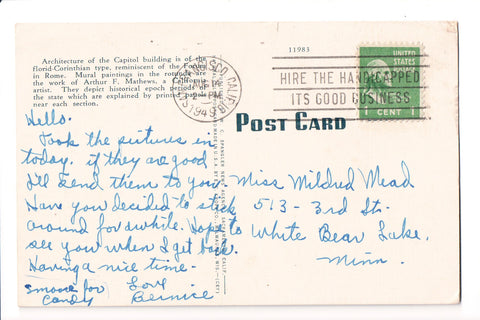 Architecture of the Capitol building is of the
florid-Corinthian type, reminiscent of the Forum
in Rome. Mural paintings in the rotunda are
the work of Arthur F. Mathews, a California
artist. They depict historical epoch periods of
the state which are explained by printed panels
near each section.
11983
CALIF
1949
HIRE THE HANDICAPPED
ITS GOOD BUSINESS
UNITED STATES
1 CENT 1
POST CARD
Hello.
Took the pictures in
today. if they are good
I'll send them to you.
Have you decided to stick
around for awhile. Hope to
see you when I get back.
Having a nice time.
smooch for
Candy
Love
Bernice
Miss Mildred Mead
513 - 3rd St.
White Bear Lake,
Minn.